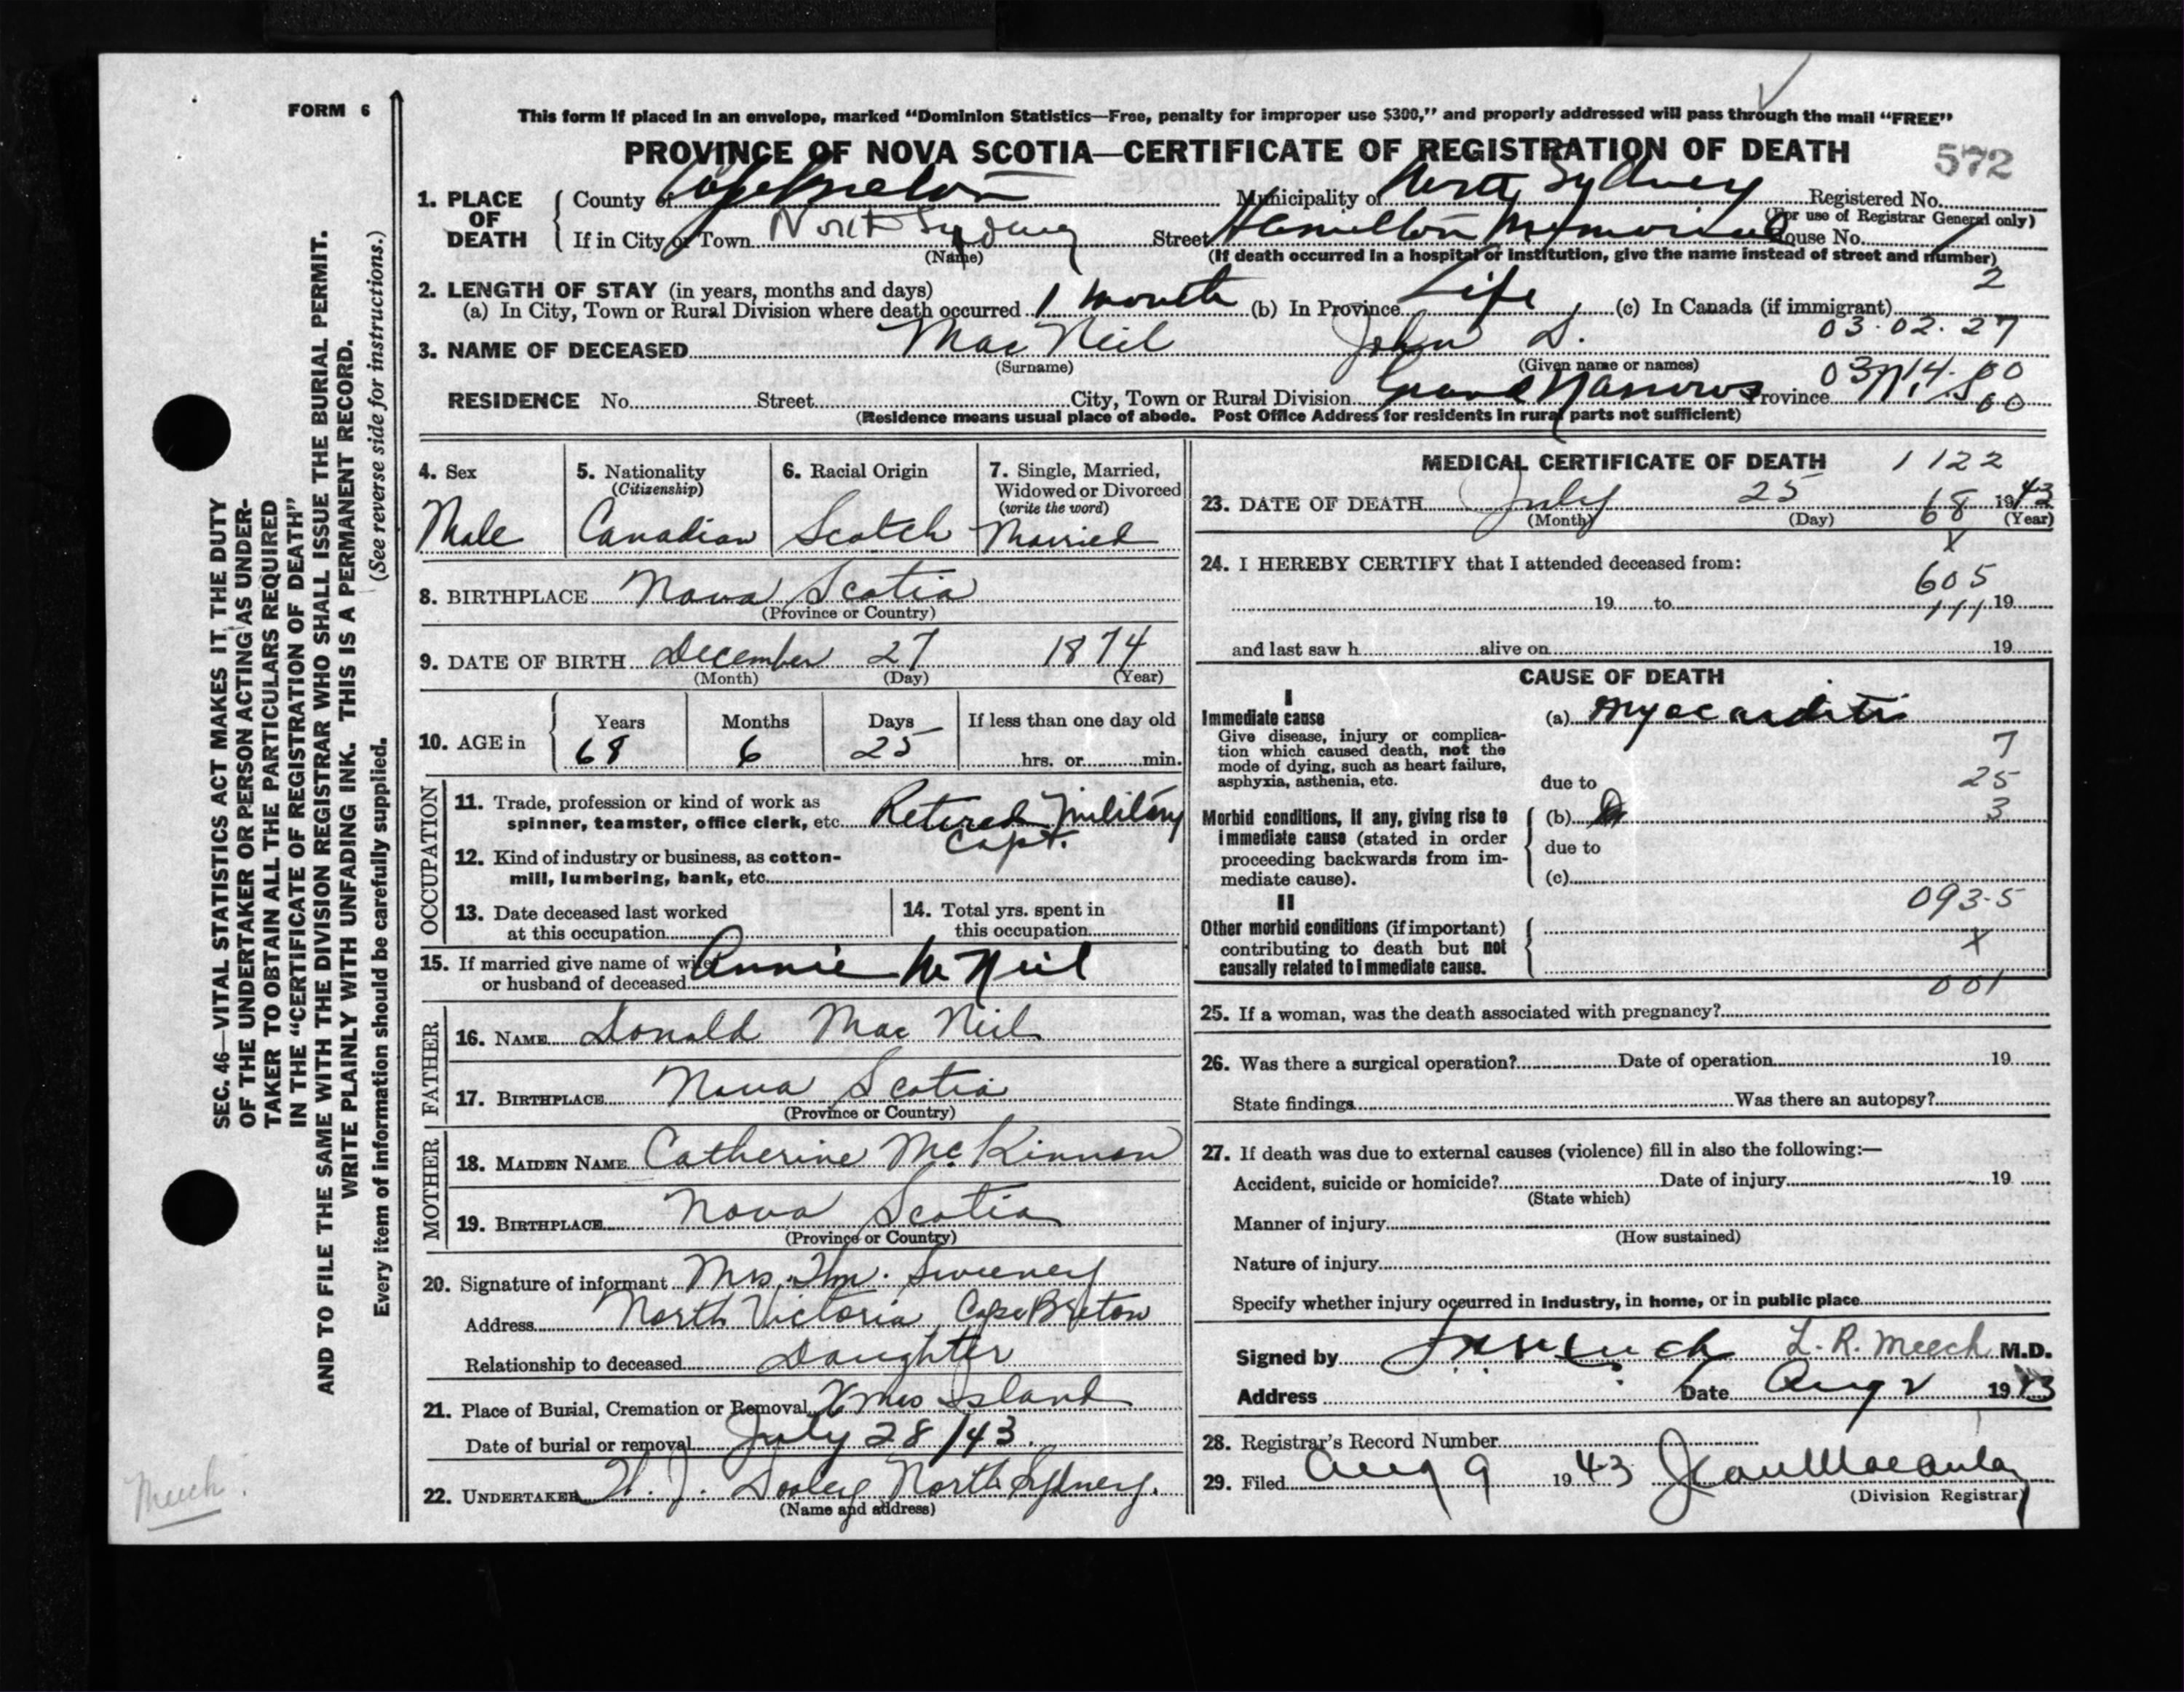 FORM 6
This form if placed in an envelope, marked "Dominion Statistics—Free, penalty for improper use $300," and properly addressed will pass through the mail "FREE"
PROVINCE OF NOVA SCOTIA—CERTIFICATE OF REGISTRATION OF DEATH
572
1. PLACE OF DEATH
County of Cape Breton Municipality of North Sydney Registered No.
(For use of Registrar General only)
If in City or Town North Sydney Street Hamilton Memorial House No.
(Name) (If death occurred in a hospital or institution, give the name instead of street and number)
2
2. LENGTH OF STAY (in years, months and days)
(a) In City, Town or Rural Division where death occurred 1 month (b) In Province Life (c) In Canada (if immigrant)
03·02·27
3. NAME OF DECEASED Mac Neil John S.
(Surname) (Given name or names)
RESIDENCE No. Street City, Town or Rural Division Grand Narrows Province N.S.
(Residence means usual place of abode. Post Office Address for residents in rural parts not sufficient)
4. Sex
Male
5. Nationality
(Citizenship)
Canadian
6. Racial Origin
Scotch
7. Single, Married, Widowed or Divorced
(write the word)
Married
8. BIRTHPLACE Nova Scotia
(Province or Country)
9. DATE OF BIRTH December 27 1874
(Month) (Day) (Year)
10. AGE in
Years Months Days If less than one day old
68 6 25 hrs. or min.
OCCUPATION
11. Trade, profession or kind of work as
spinner, teamster, office clerk, etc. Retired Military
Capt.
12. Kind of industry or business, as cotton-
mill, lumbering, bank, etc.
13. Date deceased last worked
at this occupation
14. Total yrs. spent in
this occupation
15. If married give name of wife
or husband of deceased Annie McNeil
FATHER
16. NAME Donald Mac Neil
17. BIRTHPLACE Nova Scotia
(Province or Country)
MOTHER
18. MAIDEN NAME Catherine McKinnon
19. BIRTHPLACE Nova Scotia
(Province or Country)
20. Signature of informant Mrs. Sweeney
Address North Victoria, Cape Breton
Relationship to deceased Daughter
21. Place of Burial, Cremation or Removal Xmas Island
Date of burial or removal July 28/43.
22. UNDERTAKER W. J. Dooley North Sydney.
(Name and address)
MEDICAL CERTIFICATE OF DEATH 1122
23. DATE OF DEATH July 25 1943
(Month) (Day) (Year)
68
X
24. I HEREBY CERTIFY that I attended deceased from:
605
19 to 19
111
and last saw h alive on 19
CAUSE OF DEATH
I
Immediate cause
Give disease, injury or complica-
tion which caused death, not the
mode of dying, such as heart failure,
asphyxia, asthenia, etc.
(a) Myocarditis
7
due to 25
Morbid conditions, if any, giving rise to
immediate cause (stated in order
proceeding backwards from im-
mediate cause).
(b) 3
due to
(c)
093·5
II
Other morbid conditions (if important)
contributing to death but not
causally related to immediate cause.
X
001
25. If a woman, was the death associated with pregnancy?
26. Was there a surgical operation? Date of operation 19
State findings Was there an autopsy?
27. If death was due to external causes (violence) fill in also the following:—
Accident, suicide or homicide? Date of injury 19
(State which)
Manner of injury
(How sustained)
Nature of injury
Specify whether injury occurred in industry, in home, or in public place
Signed by L. R. Meech M.D.
Address Date Aug 2 1943
28. Registrar's Record Number
29. Filed Aug 9 1943 Jean Macaulay
(Division Registrar)
SEC. 46—VITAL STATISTICS ACT MAKES IT THE DUTY
OF THE UNDERTAKER OR PERSON ACTING AS UNDER-
TAKER TO OBTAIN ALL THE PARTICULARS REQUIRED
IN THE "CERTIFICATE OF REGISTRATION OF DEATH"
AND TO FILE THE SAME WITH THE DIVISION REGISTRAR WHO SHALL ISSUE THE BURIAL PERMIT.
WRITE PLAINLY WITH UNFADING INK. THIS IS A PERMANENT RECORD.
Every item of information should be carefully supplied. (See reverse side for instructions.)
Meech